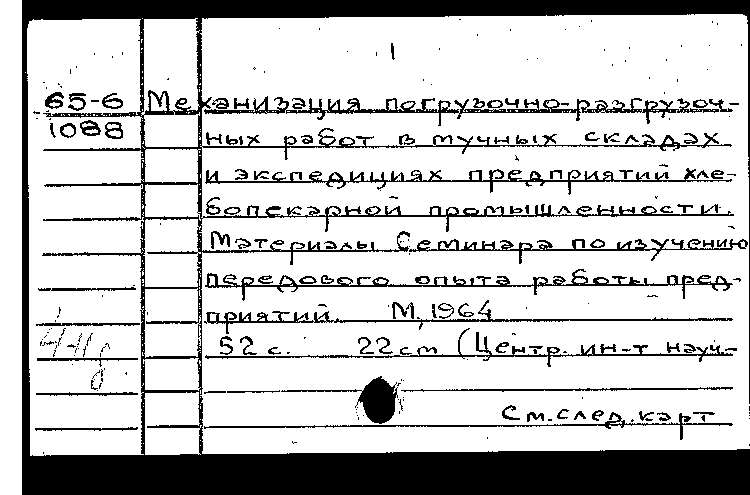 1
65-6 Механизация погрузочно-разгрузоч-
1088 ных работ в мучных складах
и экспедициях предприятий хле-
бопекарной промышленности.
Материалы Семинара по изучению
передового опыта работы пред-
приятий. М, 1964
52 с. 22 см (Центр. ин-т науч.-
См. след. карт